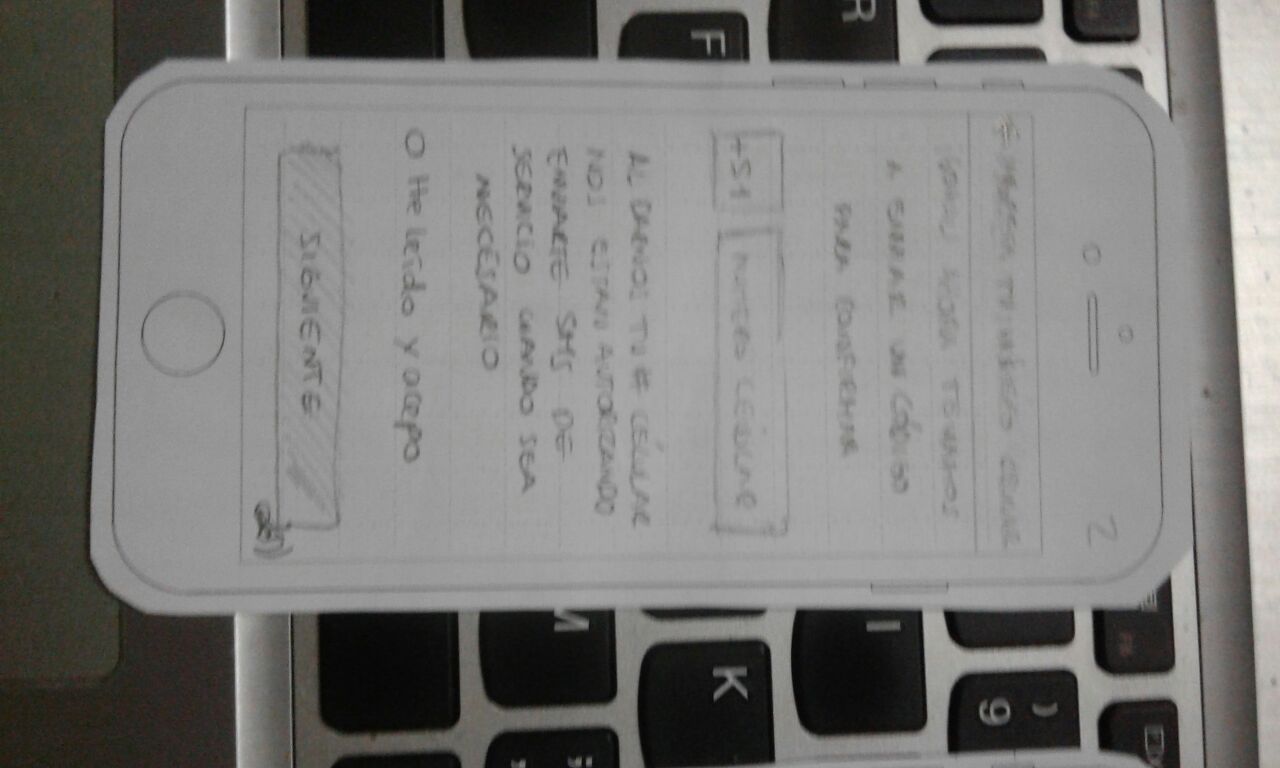 2
TU NÚMERO CELULAR
AHORA TENEMOS
A ENVIAR UN CÓDIGO
PARA CONFIRMAR
+51 NUMERO CELULAR
AL DARNOS TU # CELULAR
NOS ESTAS AUTORIZANDO
ENVIARTE SMS DE
SERVICIO CUANDO SEA
NECESARIO
O He leido y acepo
SIGUIENTE
R
F
M
K
I
)
9